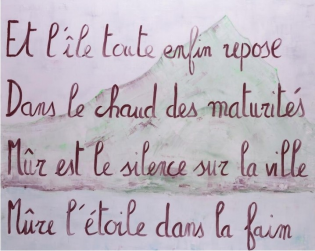 Et l'île toute enfin repose
Dans le chaud des maturités
Mûr est le silence sur la ville
Mûre l'étoile dans la faim